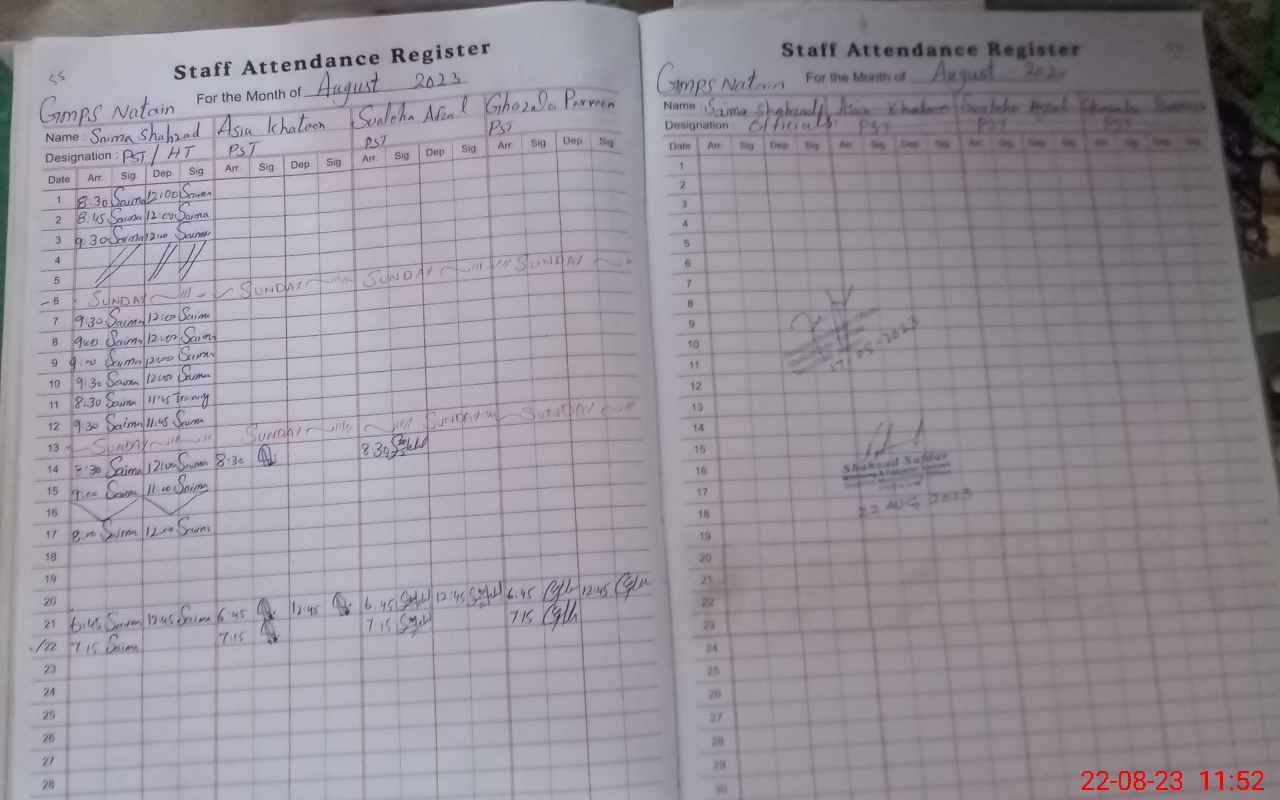 55
Staff Attendance Register
For the Month of August 2023
GMPS Natain
Name : Saima Shahzad Asia Khatoon Afzal Ghazala Parveen
Designation : PST / HT PST PST PST
Date Arr. Sig. Dep Sig. Arr. Sig. Dep Sig. Arr. Sig. Dep Sig. Arr. Sig. Dep Sig.
1 8:30 Saima 12:00 Saima
2 8:45 Saima 12:00 Saima
3 9:30 Saima 12:00 Saima
4
5
6 SUNDAY SUNDAY SUNDAY SUNDAY
7 9:30 Saima 12:00 Saima
8 9:00 Saima 12:00 Saima
9 9:00 Saima 12:00 Saima
10 9:30 Saima 12:00 Saima
11 8:30 Saima 11:45
12 9:30 Saima 11:45 Saima
13 SUNDAY SUNDAY SUNDAY SUNDAY
14 8:30 Saima 12:00 Saima 8:30 8:30
15 9:00 Saima 11:00 Saima
16
17 8:00 Saima 12:00 Saima
18
19
20
21 6:45 Saima 12:45 Saima 6:45 12:45 6:45 12:45 6:45 12:45
22 7:15 Saima 7:15 7:15 7:15
23
24
25
26
27
28
Staff Attendance Register
For the Month of August
GMPS Natain
Name : Saima Shahzad Asia Khatoon
Designation Official PST PST PST
Date Arr. Sig. Dep Sig. Arr. Sig. Dep Sig. Arr. Sig. Dep Sig. Arr. Sig. Dep Sig.
1
2
3
4
5
6
7
8
9
10
11
12
13
14
15
16
17
18
19
20
21
22
23
24
25
26
27
28
29
30
22 AUG 2023
22-08-23 11:52